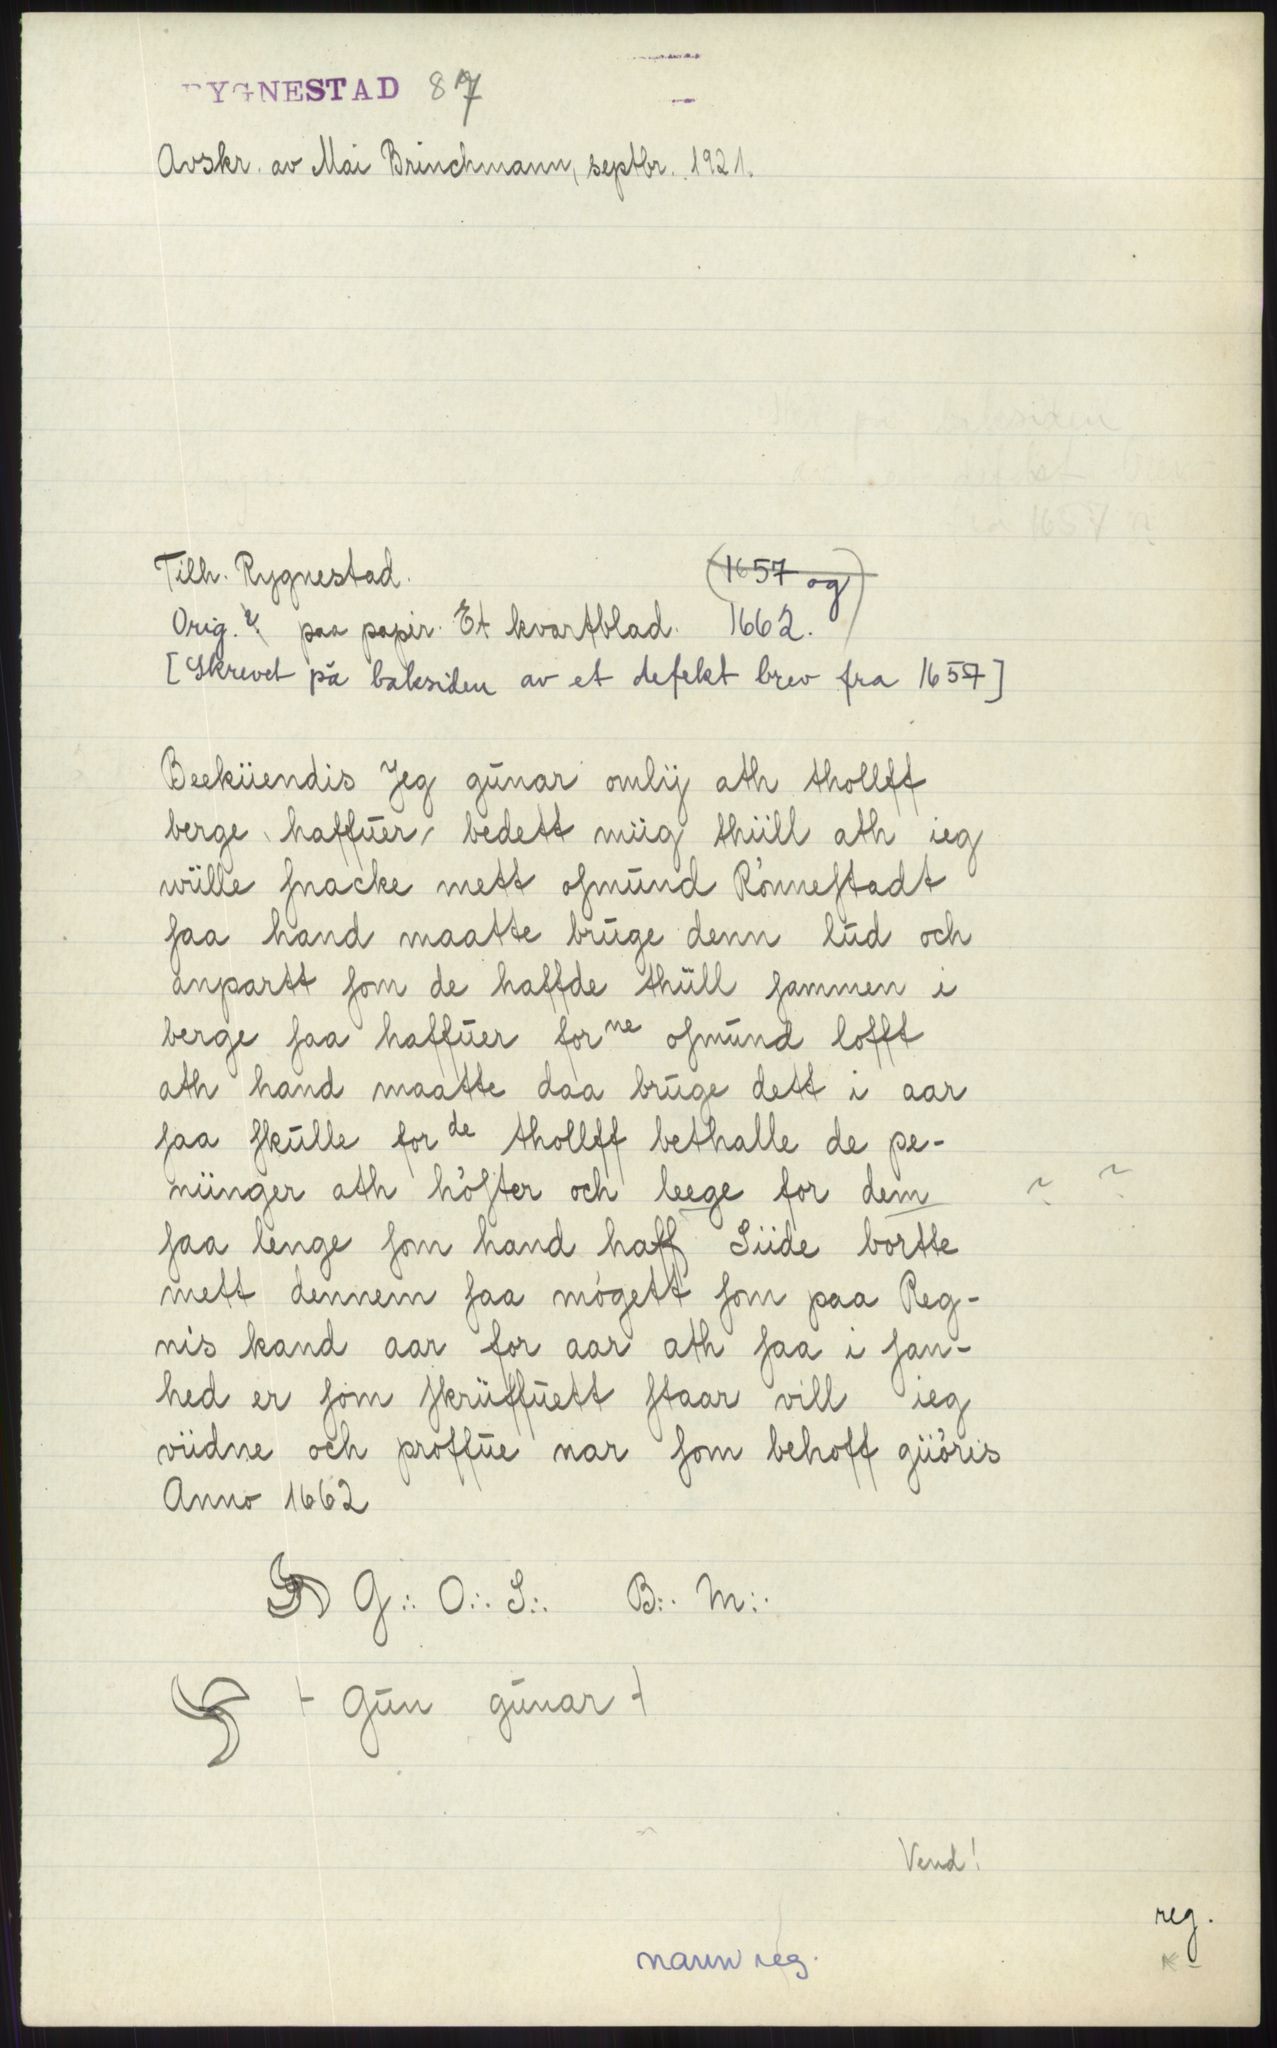 RYGNESTAD 87
Avskr. av Mai Brinchmann, septbr. 1921.
Tilh. Rygnestad. (1657 og)
Orig. ? paa papir. Et kvartblad. 1662.
[Skrevet på baksiden av et defekt brev fra 1657]
Beeküendis Jeg gūnar omlij ath thollff
berge haffūer bedett miig thüll ath ieg
wülle ſnacke mett oſmūnd Rönneſtadt
ſaa hand maatte brūge denn lūd och
anpartt ſom de haffde thüll ſammen i
berge ſaa haffūer forne oſmūnd lofft
ath hand maatte daa brūge dett i aar
ſaa ſkūlle forde thollff bethalle de pe-
nünger ath höſter och leege for dem ? ?
ſaa lenge ſom hand haff Siide bortte
mett dennem ſaa mögett ſom paa Reg-
nis kand aar for aar ath ſaa i ſan-
hed er ſom ſkrüffūett ſtaar vill ieg
viidne och proffūe nar ſom behoff güöris
Anno 1662
G.:. O.:. S.:. B.:. M.:.
Gūn gūnar
Vend!
reg.
navn reg.